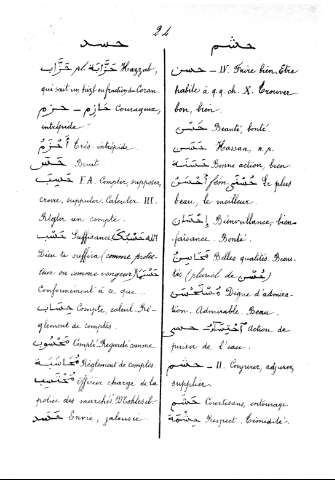 24
حسد
حَزَّاب pl. حَزَّابَة Hazzab,
qui sait un hizb ou fraction du Coran
حزم — حَازِم Courageux,
intrépide
أَحْزَم Très intrépide
حَسّ Bruit
حَسَبَ F.A. Compter, supposer,
croire, supputer, calculer III.
Régler un compte
حَسْب Suffisance, حَسْبُكَ الله
Dieu te suffira (comme protec-
teur ou comme vengeur)
Conformément à ce que
حِسَاب Compte, calcul. Ré-
glement de comptes.
مَحْسُوب Compté. Regardé comme
مُحَاسَبَة Réglement de comptes
مُحْتَسِب Officier chargé de la
police des marchés, Mohteseb
حَسَد Envie, jalousie
حشم
حسن — IV. Faire bien, Etre
habile à q.q. ch. X. Trouver
bon, bien.
حُسْن Beauté, bonté.
حَسَن Hassan, n.p.
حَسَنَة Bonne action, bien
أَحْسَن fém. حُسْنَى Le plus
beau, le meilleur.
إِحْسَان Bienveillance, bien-
faisance. Bonté.
مَحَاسِن Belles qualités. Beau-
tés (pluriel de حُسْن)
مُسْتَحْسَن Digne d'admira-
tion. Admirable. Beau.
Action de
puiser de l'eau.
حشم — II. Conjurer, adjurer,
supplier
حَشَم Courtisans, entourage
حِشْمَة Respect. Timidité.